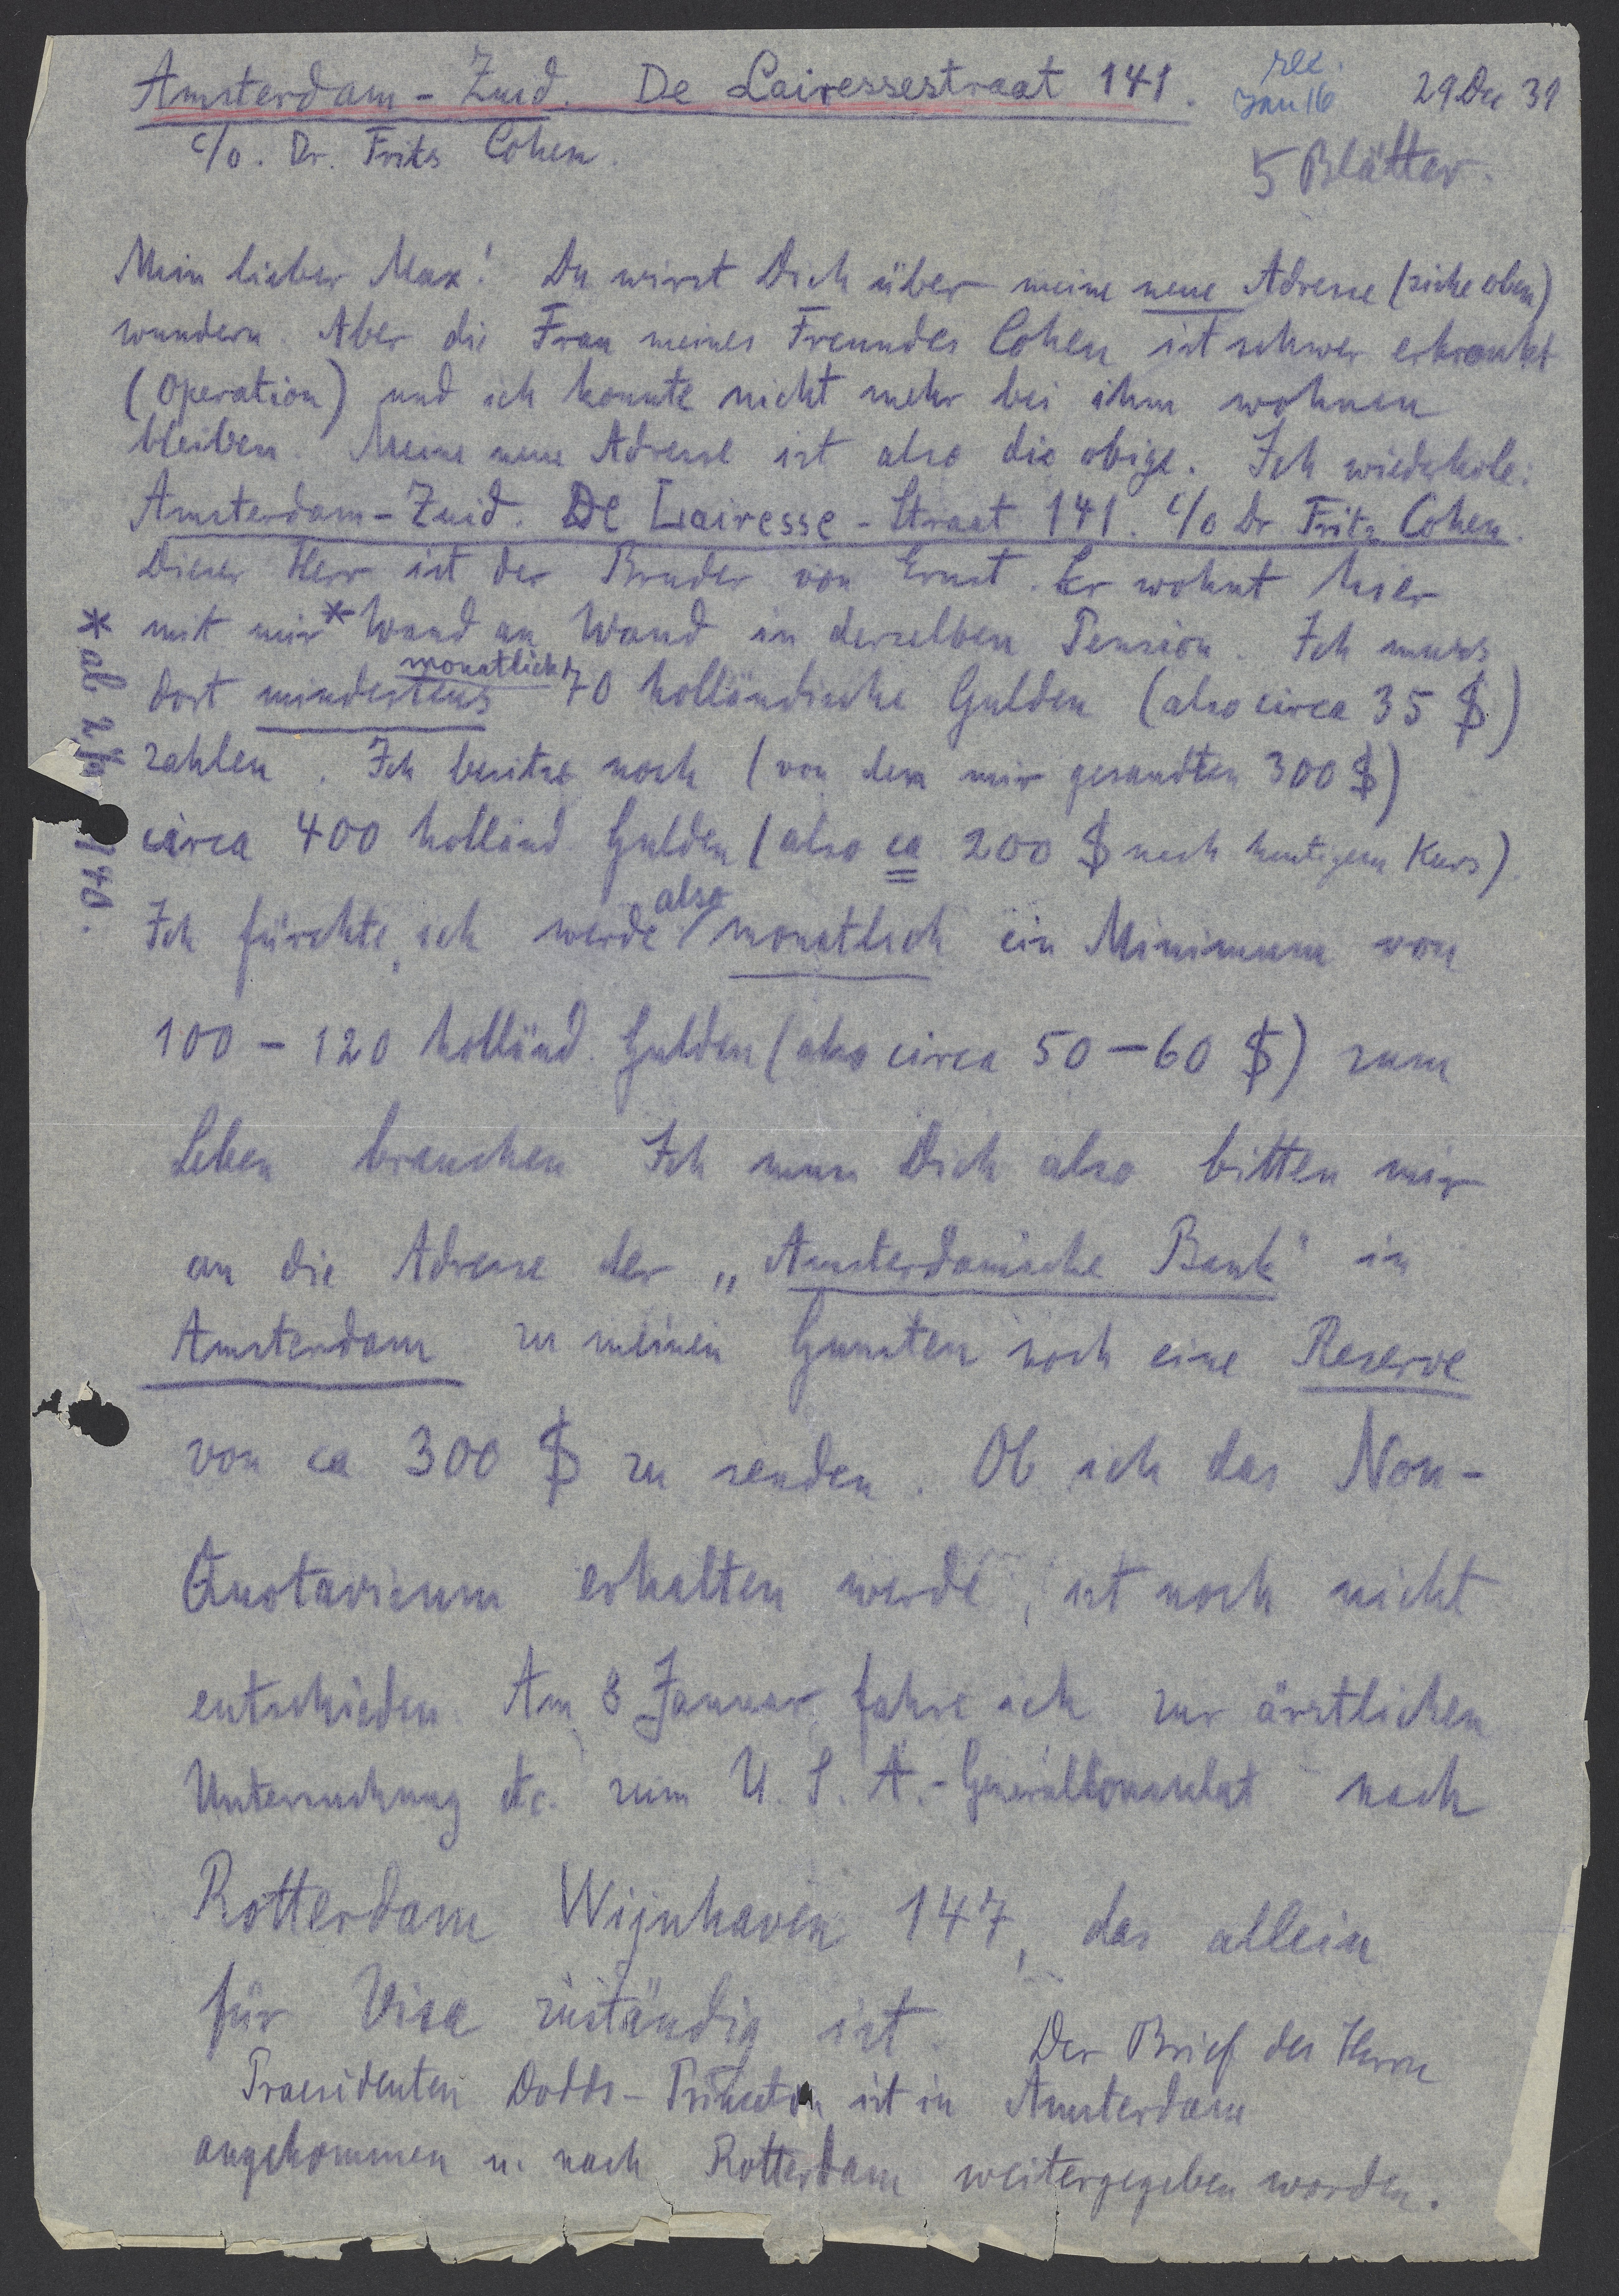 Amsterdam-Zuid. De Lairessestraat 141.
rec.
Jan 16
29. Dec 39
c/o. Dr. Frits Cohen.
5 Blätter.
Mein lieber Max! Du wirst Dich über meine neue Adresse (siehe oben)
wundern. Aber die Frau meines Freundes Cohen ist schwer erkrankt
(Operation) und ich konnte nicht mehr bei ihm wohnen
bleiben. Meine neue Adresse ist also die obige. Ich wiederhole:
Amsterdam-Zuid. De Lairesse-Straat 141. c/o Dr Fritz Cohen.
Dieser Herr ist der Bruder von Ernst. Er wohnt hier
mit mir * Wand an Wand in derselben Pension. Ich muss
dort mindestens monatlich 70 holländische Gulden (also circa 35 $)
zahlen. Ich besitze noch (von den mir gesandten 300 $)
circa 400 holländ Gulden (also ca 200 $ nach heutigem Kurs).
Ich fürchte, ich werde also monatlich ein Minimum von
100 - 120 holländ. Gulden (also circa 50 - 60 $) zum
Leben brauchen Ich muss Dich also bitten mir
an die Adresse der „Amsterdamsche Bank" in
Amsterdam zu meinen Gunsten noch eine Reserve
von ca 300 $ zu senden. Ob ich das Non-
Quotavisum erhalten werde, ist noch nicht
entschieden. Am 8 Januar fahre ich zur ärztlichen
Untersuchung etc. zum U. S. A.-Generalkonsulat nach
Rotterdam Wijnhaven 147, das allein
für Visa zuständig ist. Der Brief des Herrn
Praesidenten Dodds-Princeton ist in Amsterdam
angekommen u. nach Rotterdam weitergegeben worden.
* ab 2/ 140.